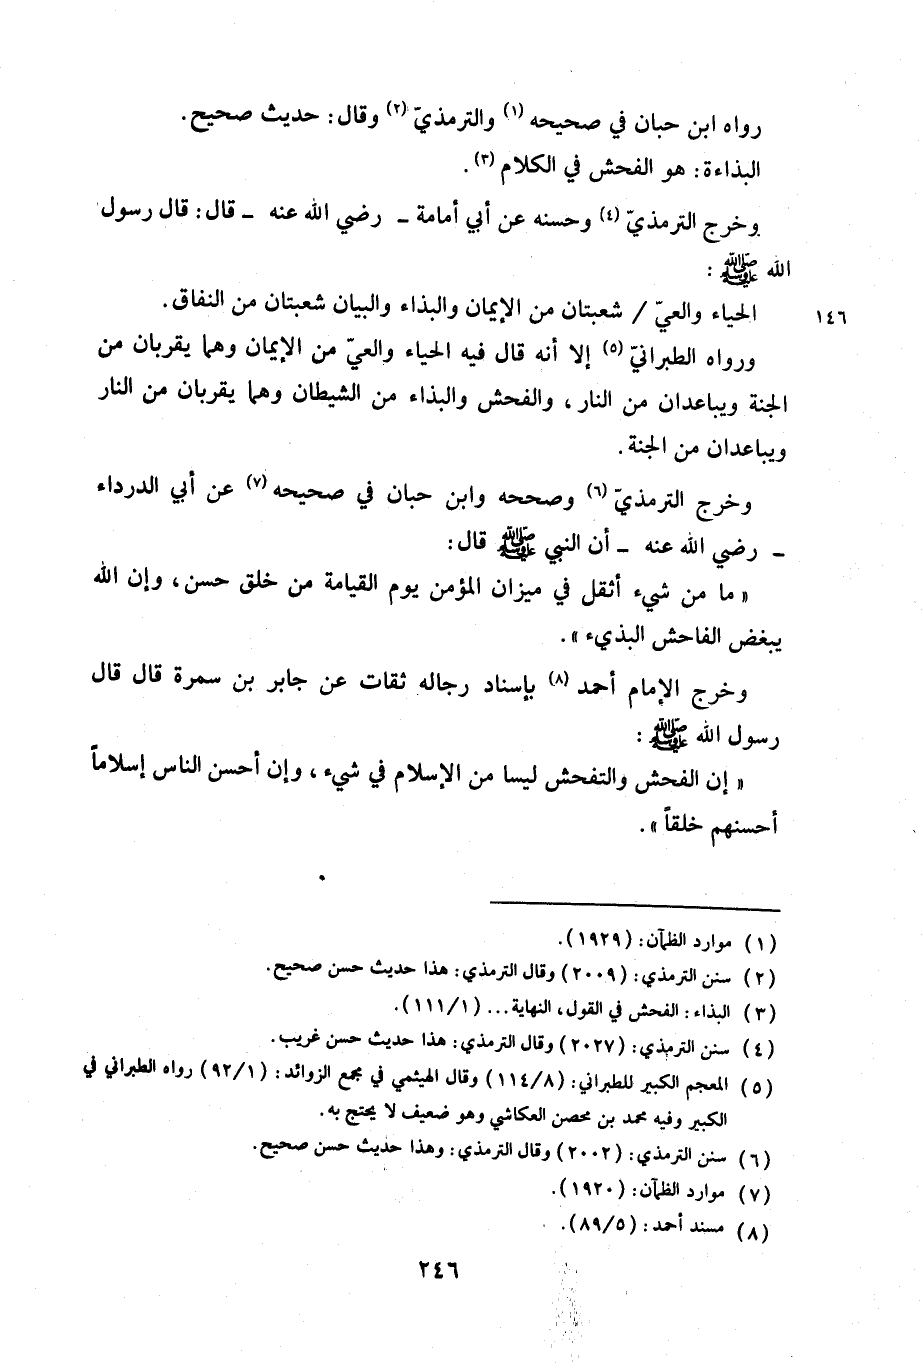 رواه ابن حبان في صحيحه (١) والترمذيّ (٢) وقال: حديث صحيح.
البذاءة: هو الفحش في الكلام (٣).
وخرج الترمذيّ (٤) وحسنه عن أبي أمامة ـ رضي الله عنه ـ قال: قال رسول
الله ﷺ :
الحياء والعيّ / شعبتان من الإيمان والبذاء والبيان شعبتان من النفاق.
١٤٦
ورواه الطبرانيّ (٥) إلا أنه قال فيه الحياء والعيّ من الإيمان وهما يقربان من
الجنة ويباعدان من النار، والفحش والبذاء من الشيطان وهما يقربان من النار
ويباعدان من الجنة.
وخرج الترمذيّ (٦) وصححه وابن حبان في صحيحه (٧) عن أبي الدرداء
ـ رضي الله عنه ـ أن النبي ﷺ قال:
« ما من شيء أثقل في ميزان المؤمن يوم القيامة من خلق حسن، وإن الله
يبغض الفاحش البذيء ».
وخرج الإمام أحمد (٨) بإسناد رجاله ثقات عن جابر بن سمرة قال قال
رسول الله ﷺ :
« إن الفحش والتفحش ليسا من الإسلام في شيء، وإن أحسن الناس إسلاماً
أحسنهم خلقاً ».
(١) موارد الظمآن: (١٩٢٩).
(٢) سنن الترمذي: (٢٠٠٩) وقال الترمذي: هذا حديث حسن صحيح.
(٣) البذاء: الفحش في القول، النهاية... (١١١/١).
(٤) سنن الترمذي: (٢٠٢٧) وقال الترمذي: هذا حديث حسن غريب.
(٥) المعجم الكبير للطبراني: (١١٤/٨) وقال الهيثمي في مجمع الزوائد: (٩٢/١) رواه الطبراني في
الكبير وفيه محمد بن محصن العكاشي وهو ضعيف لا يحتج به.
(٦) سنن الترمذي: (٢٠٠٢) وقال الترمذي: وهذا حديث حسن صحيح.
(٧) موارد الظمآن: (١٩٢٠).
(٨) مسند أحمد: (٨٩/٥).
٢٤٦